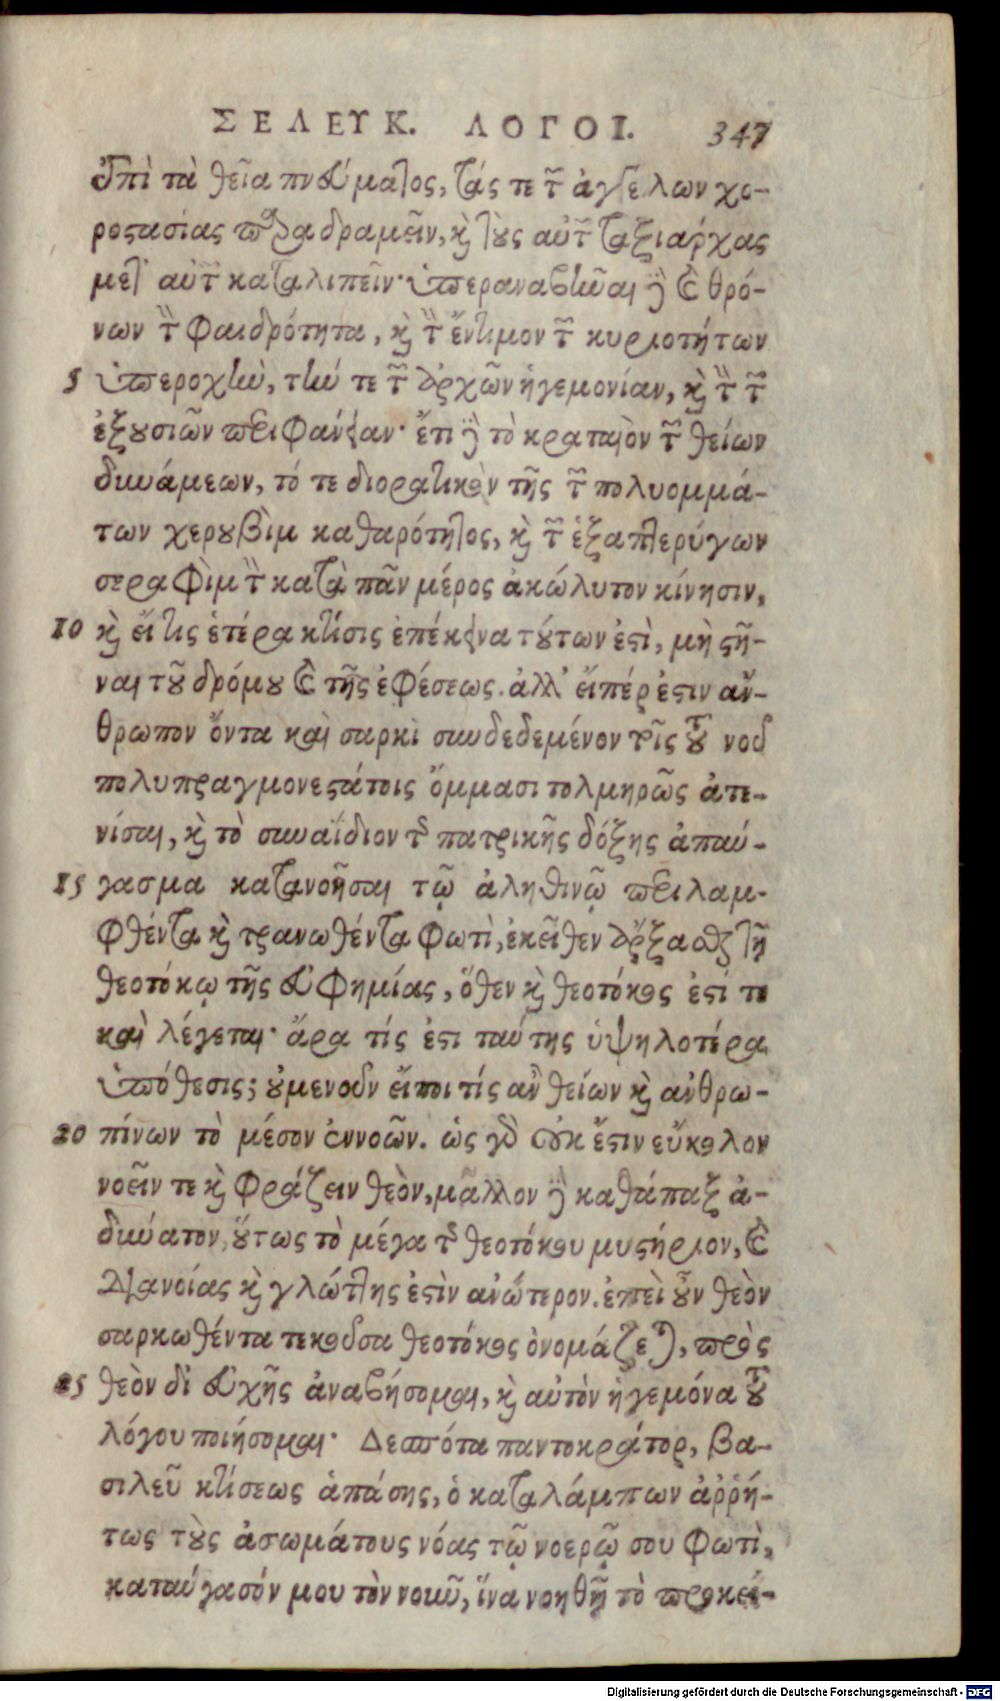 ΣΕΛΕΥΚ. ΛΟΓΟΙ. 347
ἐπὶ τὰ θεῖα πνεύματος, τάς τε τῶν ἀγγέλων χο-
ροστασίας παραδραμεῖν, καὶ τοὺς αὐτῶν ταξιάρχας
μετ' αὐτῶν καταλιπεῖν· ὑπεραναβῆναι δὲ καὶ θρό-
νων τὴν φαιδρότητα, καὶ τὴν ἔντιμον τῶν κυριοτήτων
5 ὑπεροχὴν, τήν τε τῶν ἀρχῶν ἡγεμονίαν, καὶ τὴν τῶν
ἐξουσιῶν περιφάνειαν· ἔτι δὲ τὸ κραταιὸν τῶν θείων
δυνάμεων, τό τε διορατικὸν τῆς τῶν πολυομμά-
των χερουβὶμ καθαρότητος, καὶ τῶν ἑξαπτερύγων
σεραφὶμ τὴν κατὰ πᾶν μέρος ἀκώλυτον κίνησιν,
10 καὶ εἴ τις ἑτέρα κτίσις ἐπέκεινα τούτων ἐστὶ, μὴ στῆ-
ναι τοῦ δρόμου καὶ τῆς ἐφέσεως. ἀλλ' εἴπέρ ἐστιν ἄν-
θρωπον ὄντα καὶ σαρκὶ συνδεδεμένον τοῖς τοῦ νοῦ
πολυπραγμονεστάτοις ὄμμασι τολμηρῶς ἀτε-
νίσαι, καὶ τὸ συναΐδιον τῆς πατρικῆς δόξης ἀπαύ-
15 γασμα κατανοῆσαι τῷ ἀληθινῷ περιλαμ-
φθέντα καὶ τρανωθέντα φωτὶ, ἐκεῖθεν ἄρξασθαι τῇ
θεοτόκῳ τῆς εὐφημίας, ὅθεν καὶ θεοτόκος ἐστί τε
καὶ λέγεται· ἄρα τίς ἐστι ταύτης ὑψηλοτέρα
ὑπόθεσις; οὐμενοῦν εἴποι τίς ἂν θείων καὶ ἀνθρω-
20 πίνων τὸ μέσον ἐννοῶν. ὡς γὰρ οὐκ ἔστιν εὔκολον
νοεῖν τε καὶ φράζειν θεὸν, μᾶλλον δὲ καθάπαξ ἀ-
δύνατον, οὕτως τὸ μέγα τῆς θεοτόκου μυστήριον, καὶ
διανοίας καὶ γλώττης ἐστὶν ἀνώτερον. ἐπεὶ οὖν θεὸν
σαρκωθέντα τεκοῦσα θεοτόκος ὀνομάζεται, πρὸς
25 θεὸν δι' εὐχῆς ἀναβήσομαι, καὶ αὐτὸν ἡγεμόνα τοῦ
λόγου ποιήσομαι· Δέσποτα παντοκράτορ, βα-
σιλεῦ κτίσεως ἁπάσης, ὁ καταλάμπων ἀῤῥή-
τως τοὺς ἀσωμάτους νόας τῷ νοερῷ σου φωτὶ,
καταύγασόν μου τὸν νοῦν, ἵνα νοηθῇ τὸ προκεί-
Digitalisierung gefördert durch die Deutsche Forschungsgemeinschaft - DFG